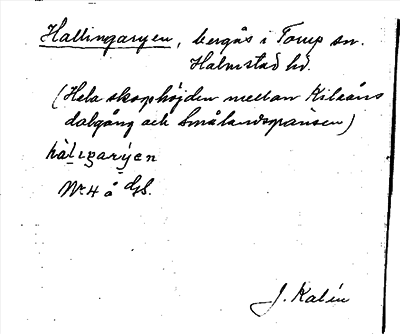 Hallingaryen, bergås i Torup sn.
Halmstad hd
(Hela skogshöjden mellan Kilaåns
dalgång och Smålandsgränsen)
hàlıgarýen
J. Kalén